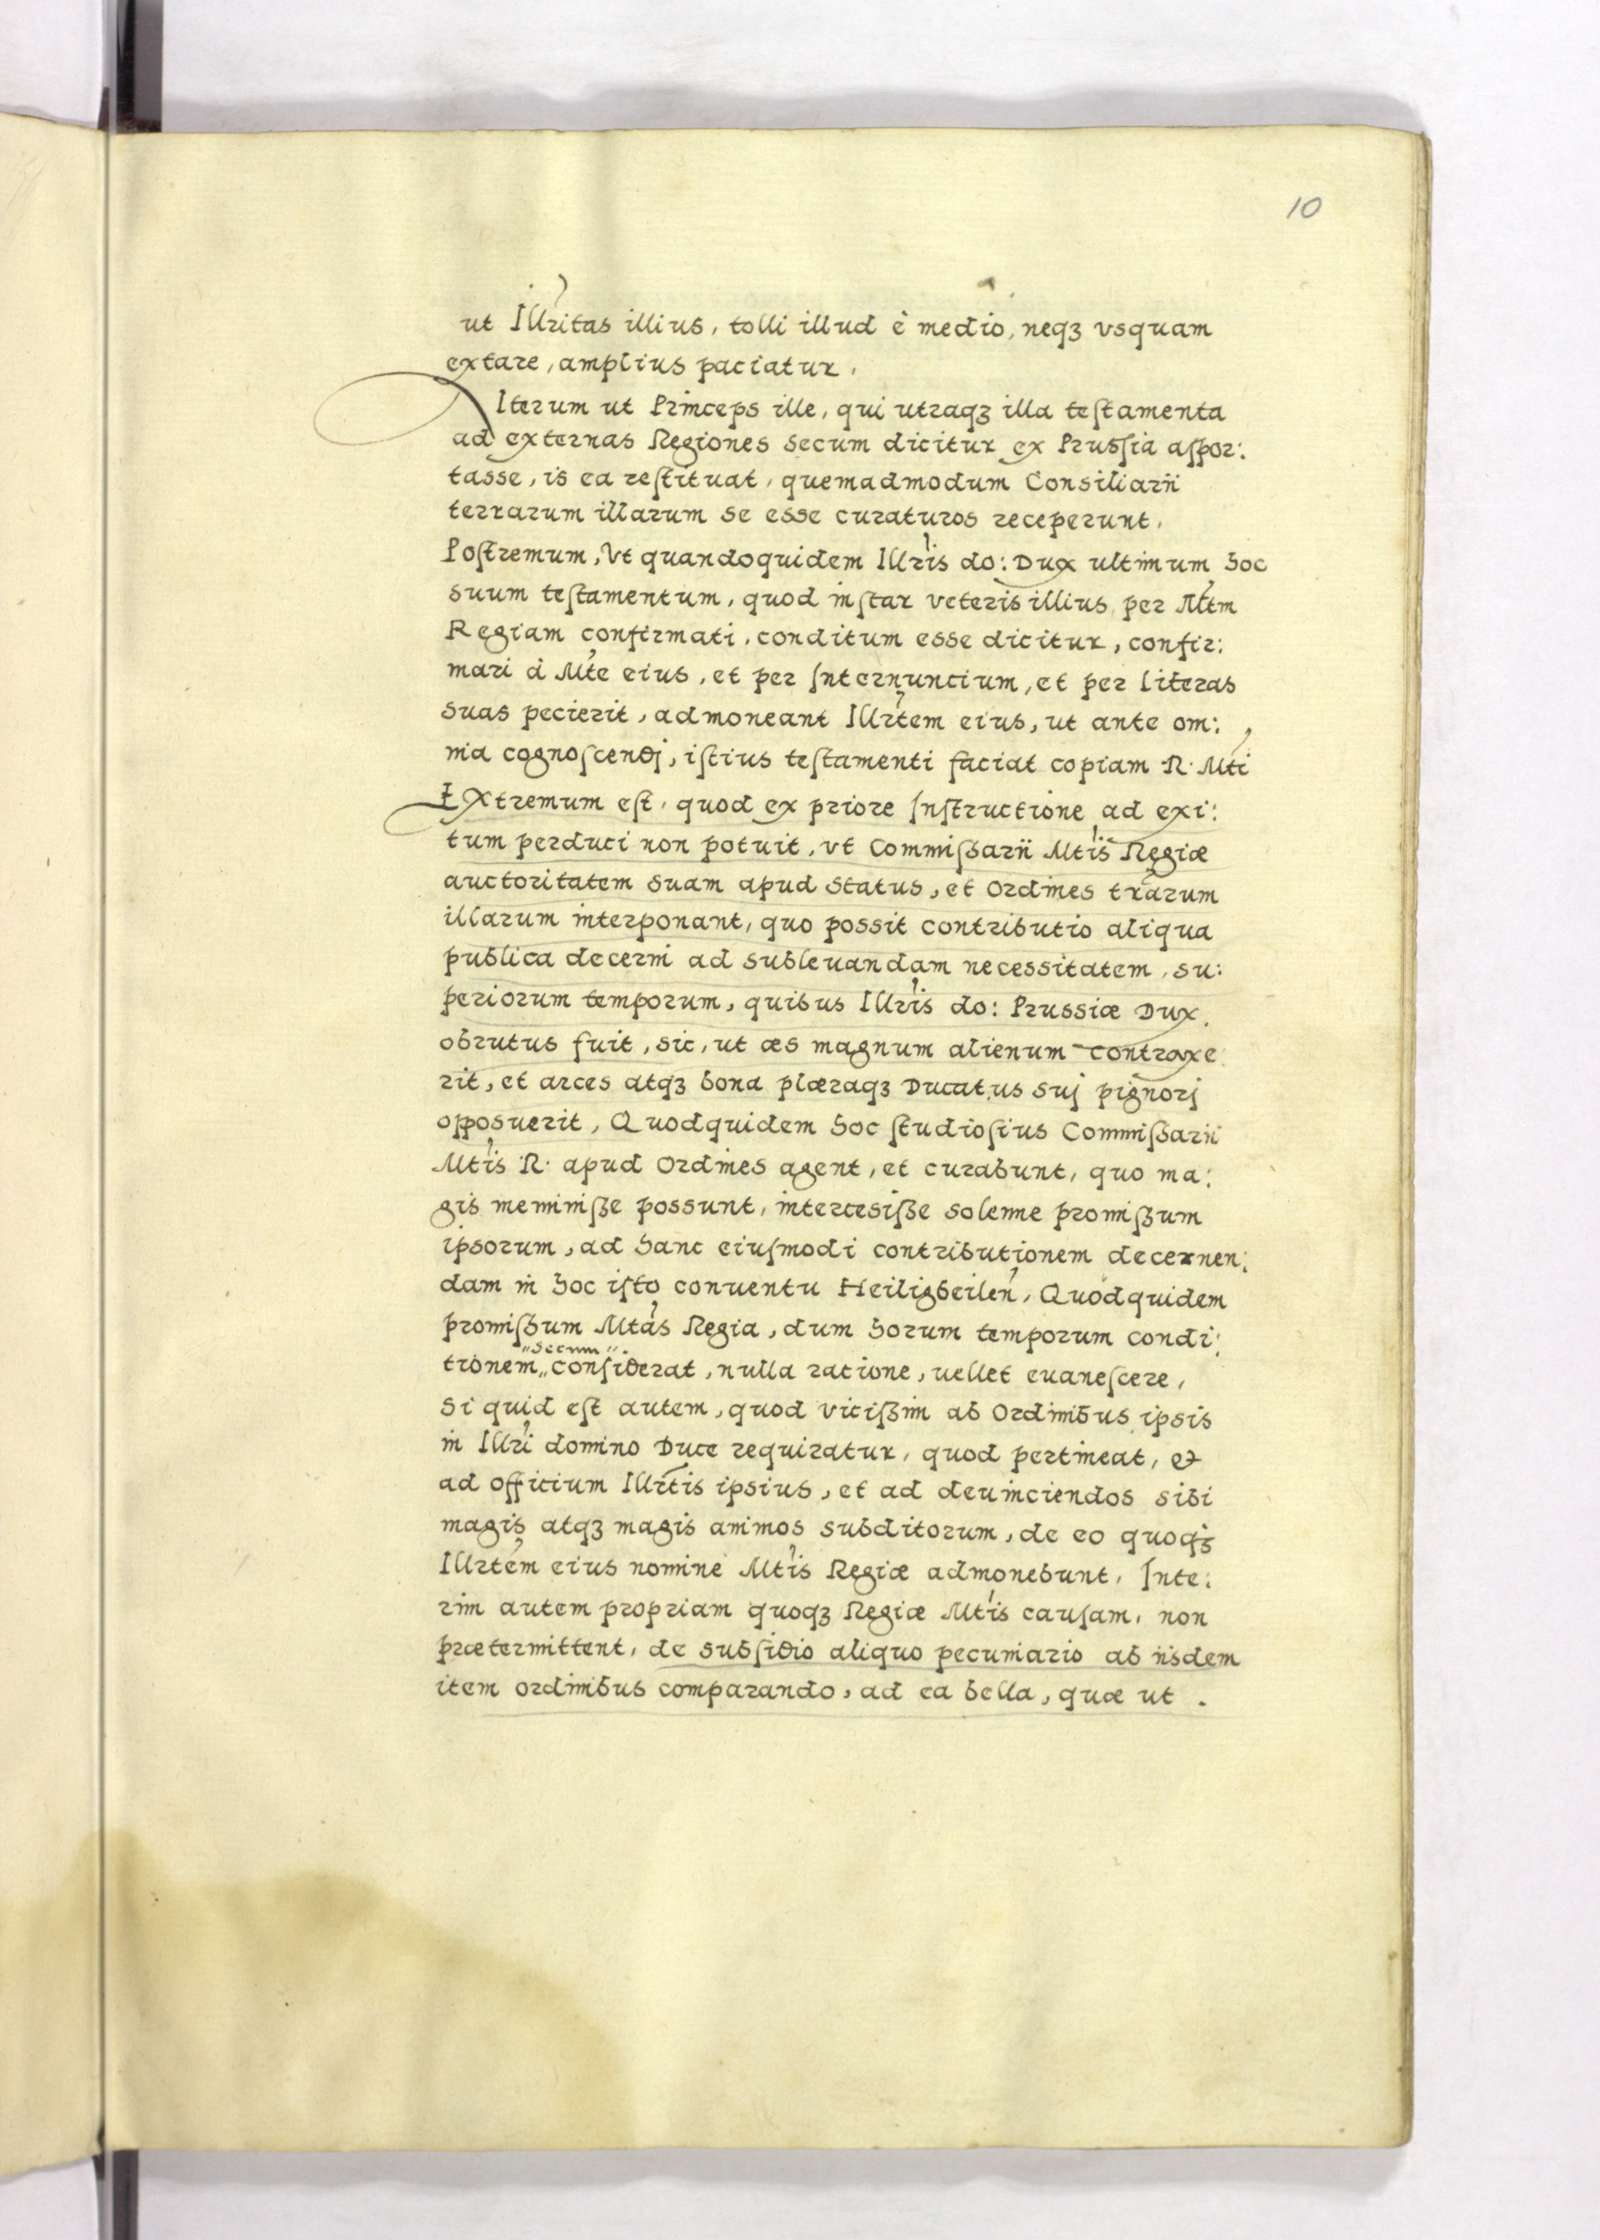 10
ut Illritas illius, tolli illud è medio, neqꝫ vsquam
extare, amplius paciatur.
Iterum ut Princeps ille, qui utraqꝫ illa teſtamenta
ad externas Regiones secum dicitur ex Prusſia aſpor:
tasse, is ea reſtituat, quemadmodum Consiliarii
terrarum illarum se esse curaturos receperunt.
Poſtremum, Vt quandoquidem Illris do: Dux ultimum hoc
suum teſtamentum, quod inſtar veteris illius per Mtm
Regiam confirmati, conditum esse dicitur, confir:
mari à Mte eius, et per Internuncium, et per literas
suas pecierit, admoneant Illrtem eius, ut ante om:
nia cognoſcendj, iſtius teſtamenti faciat copiam R. Mti
Extremum eſt, quod ex priore Inſtructione ad exi:
tum perduci non potuit, vt Commiſsarii Mtis Regiæ
auctoritatem suam apud status, et ordines trarum
illarum interponant, quo possit contributio aliqua
publica decerni ad subleuandam necessitatem, su:
periorum temporum, quibus Illris do: Prussiæ Dux
obrutus fuit, sic, ut æs magnum alienum contraxe
rit, et arces atqꝫ bona plæraqꝫ Ducatus suj pignorj
opposuerit, Quodquidem hoc ſtudioſius Commiſsarii
Mtis R. apud Ordines agent, et curabunt, quo ma:
gis meminiſse possunt, intercesiſse solenne promiſsum
ipsorum, ad hanc eiuſmodi contributionem decernen:
dam in hoc iſto conuentu Heiligbeilen, Quodquidem
promiſsum Mtas Regia, dum horum temporum condi:
tionem „secum“ conſiderat, nulla ratione, uellet euaneſcere,
Si quid eſt autem, quod viciſsim ab Ordinibus ipsis
in Illri domino Duce requiratur, quod pertineat, et
ad officium Illrtis ipsius, et ad deuinciendos sibi
magis atqꝫ magis animos subditorum, de eo quoqꝫ
Illrtem eius nomine Mtis Regiæ admonebunt, Inte:
rim autem propriam quoqꝫ Regiæ Mtis cauſam, non
prætermittent, de subſidio aliquo pecuniario ab iisdem
item ordinibus comparando, ad ea bella, quæ ut